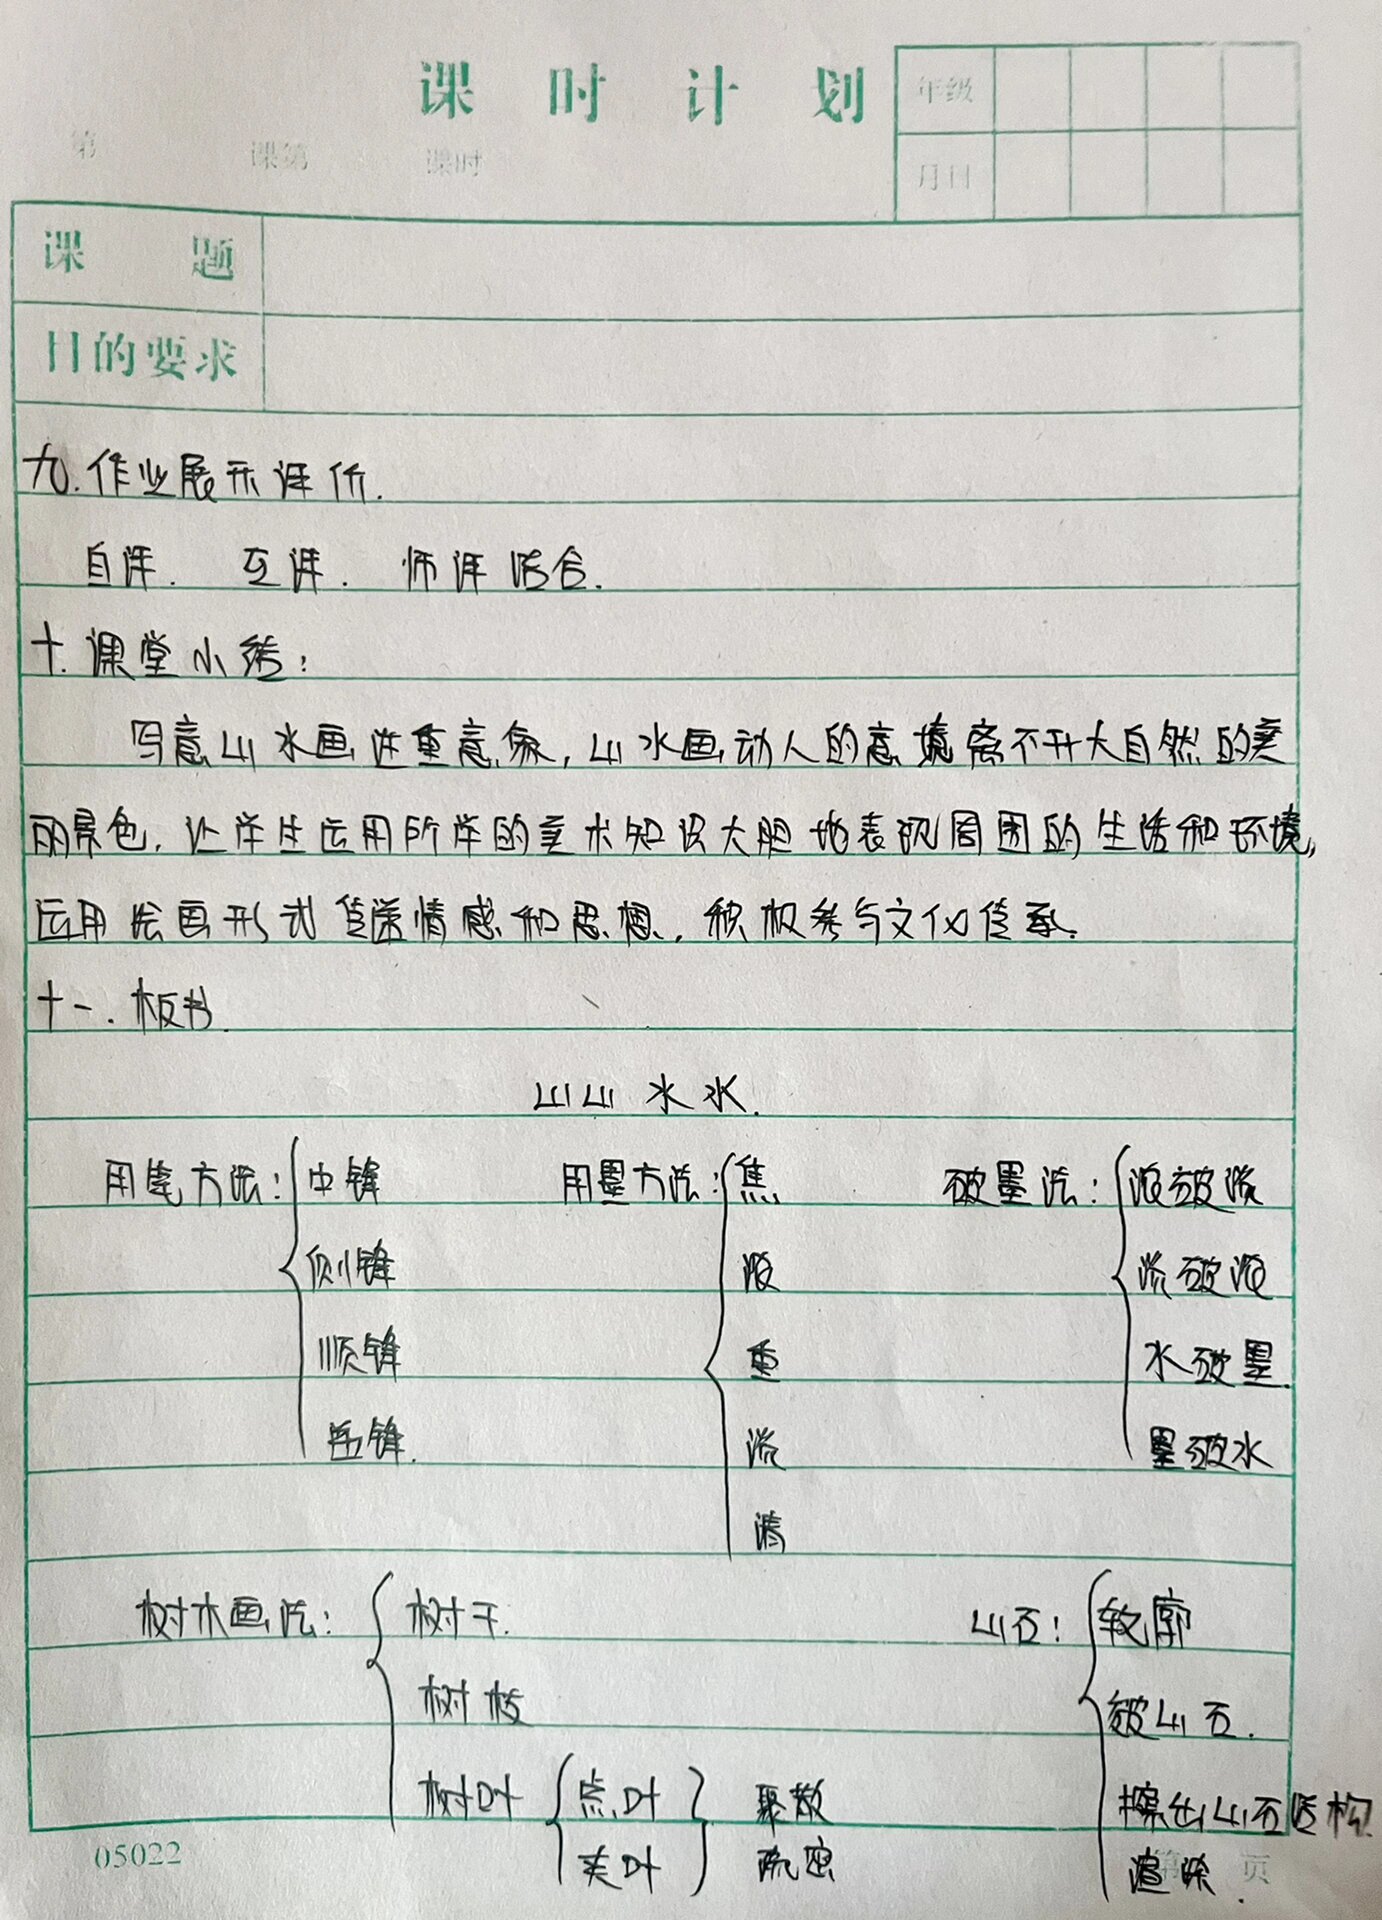 课时计划
年级
第 课第 课时
月日
课题
目的要求
九.作业展示评价.
自评. 互评. 师评结合.
十.课堂小结:
写意山水画注重意象,山水画动人的意境离不开大自然的美
丽景色,让学生运用所学的美术知识大胆地表现周围的生活和环境,
运用绘画形式传递情感和思想,积极参与文化传承.
十一.板书.
山山水水.
用笔方法: 中锋 用墨方法: 焦 破墨法: 浓破淡
侧锋 浓 淡破浓
顺锋 重 水破墨.
逆锋. 淡 墨破水
清
树木画法: 树干. 山石: 轮廓
树枝 皴山石.
树叶 点叶 聚散 擦出山石结构.
夹叶 疏密 渲染.
05022 第 页